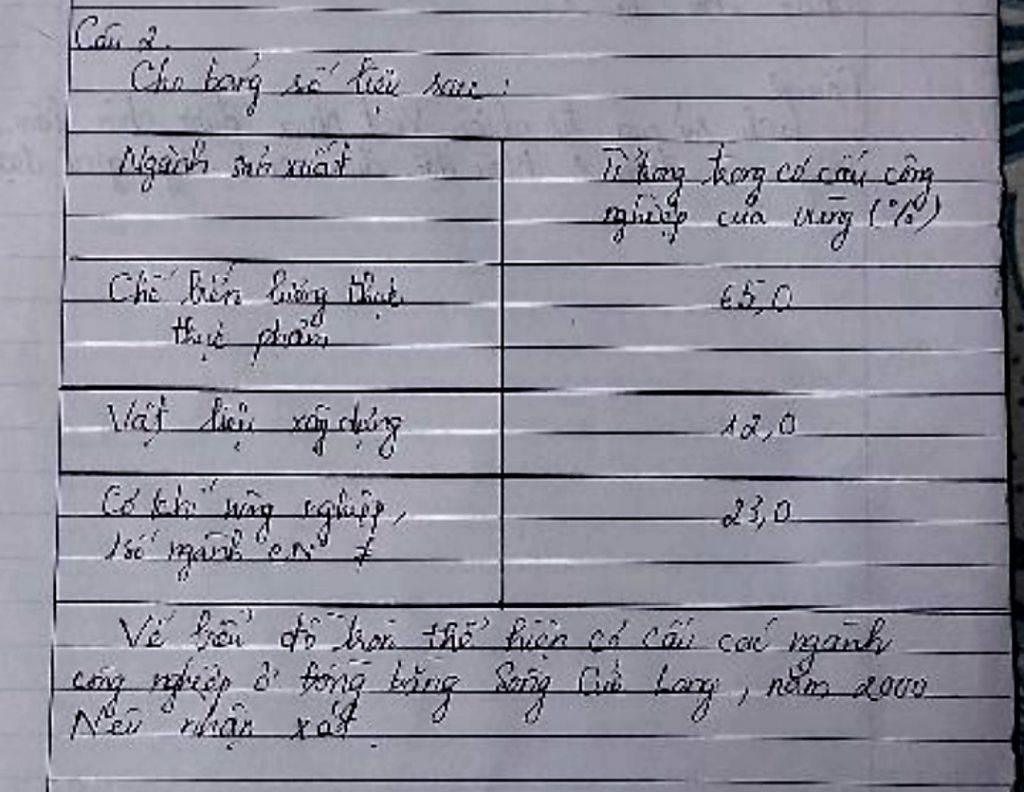 Câu 2.
Cho bảng số liệu sau:
Ngành sản xuất
Tỉ trọng trong cơ cấu công
nghiệp của vùng (%)
Chế biến lương thực
thực phẩm
65,0
Vật liệu xây dựng
12,0
Cơ khí nông nghiệp,
1 số ngành CN ≠
23,0
Vẽ biểu đồ tròn thể hiện cơ cấu các ngành
công nghiệp ở đồng bằng Sông Cửu Long, năm 2000
Nêu nhận xét.